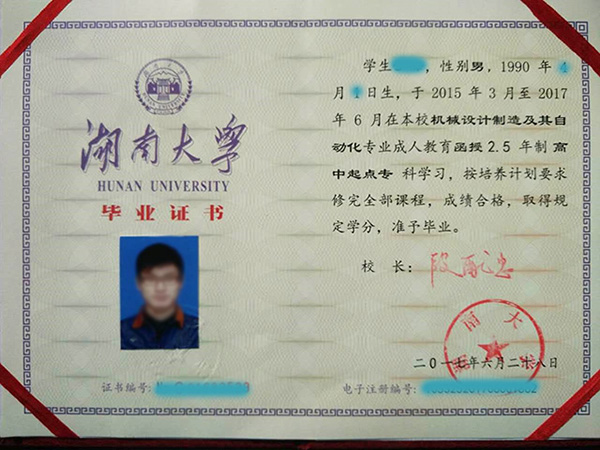 湖南大学
HUNAN UNIVERSITY
毕业证书
证书编号:
学生 ，性别男，1990 年 4
月 1日生，于 2015 年 3 月至 2017
年 6 月在本校机械设计制造及其自
动化专业成人教育函授2.5 年制 高
中起点专 科学习，按培养计划要求
修完全部课程，成绩合格，取得规
定学分，准予毕业。
校 长：
湖南大学
二〇一七年六月二十八日
电子注册编号: